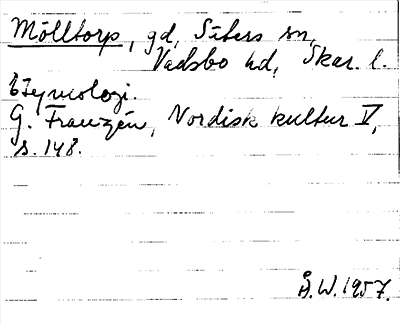 Mölltorp, gd, Säters sn,
Vadsbo hd, Skar. l.
Etymologi.
G. Franzén, Nordisk kultur V,
s. 148.
Å.W. 1957.